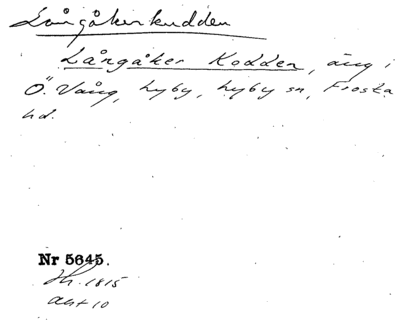 Långåkerkudden
Långåker Kodden, äng i
Ö. Vång, Lyby, Lyby sn, Frosta
hd.
Nr 5645.
Sk. 1815
akt 10